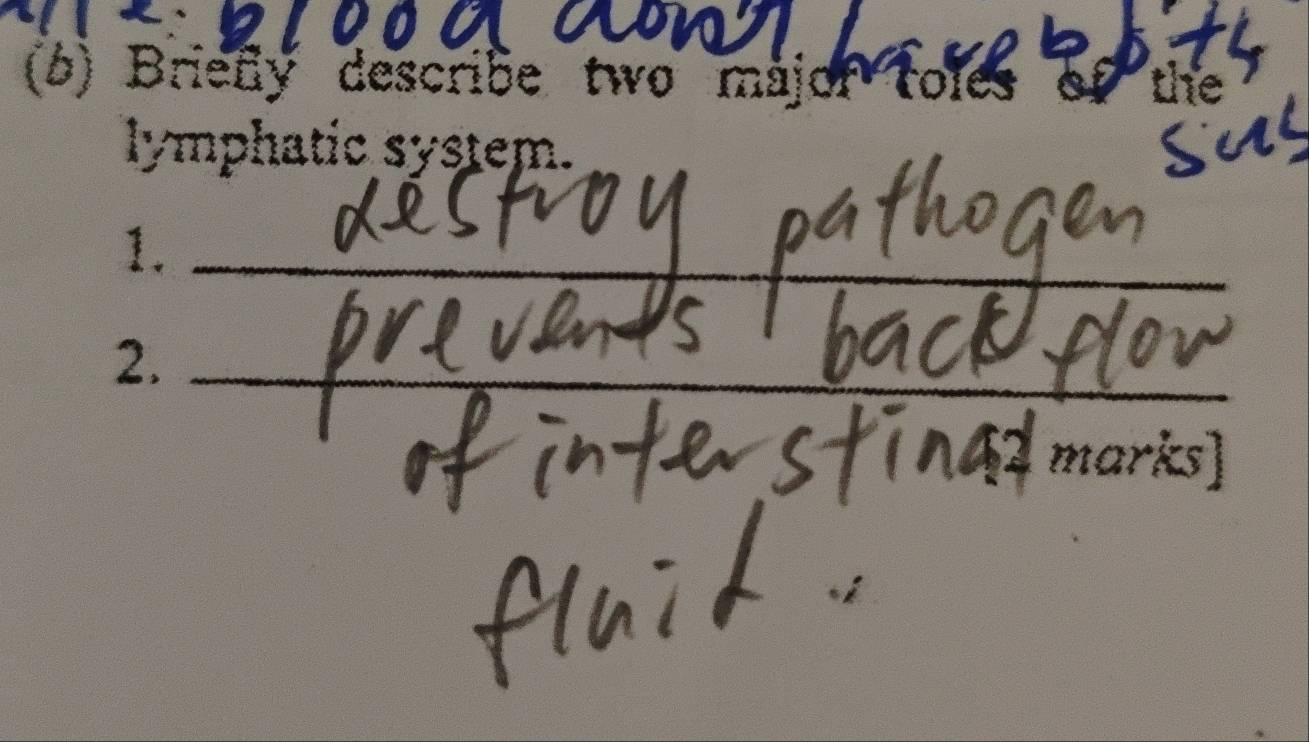 blood don't have both
(b) Briefly describe two major roles of the
sub
lymphatic system.
1. destroy pathogen
2. prevents back flow
of interstinal [2 marks]
fluid.